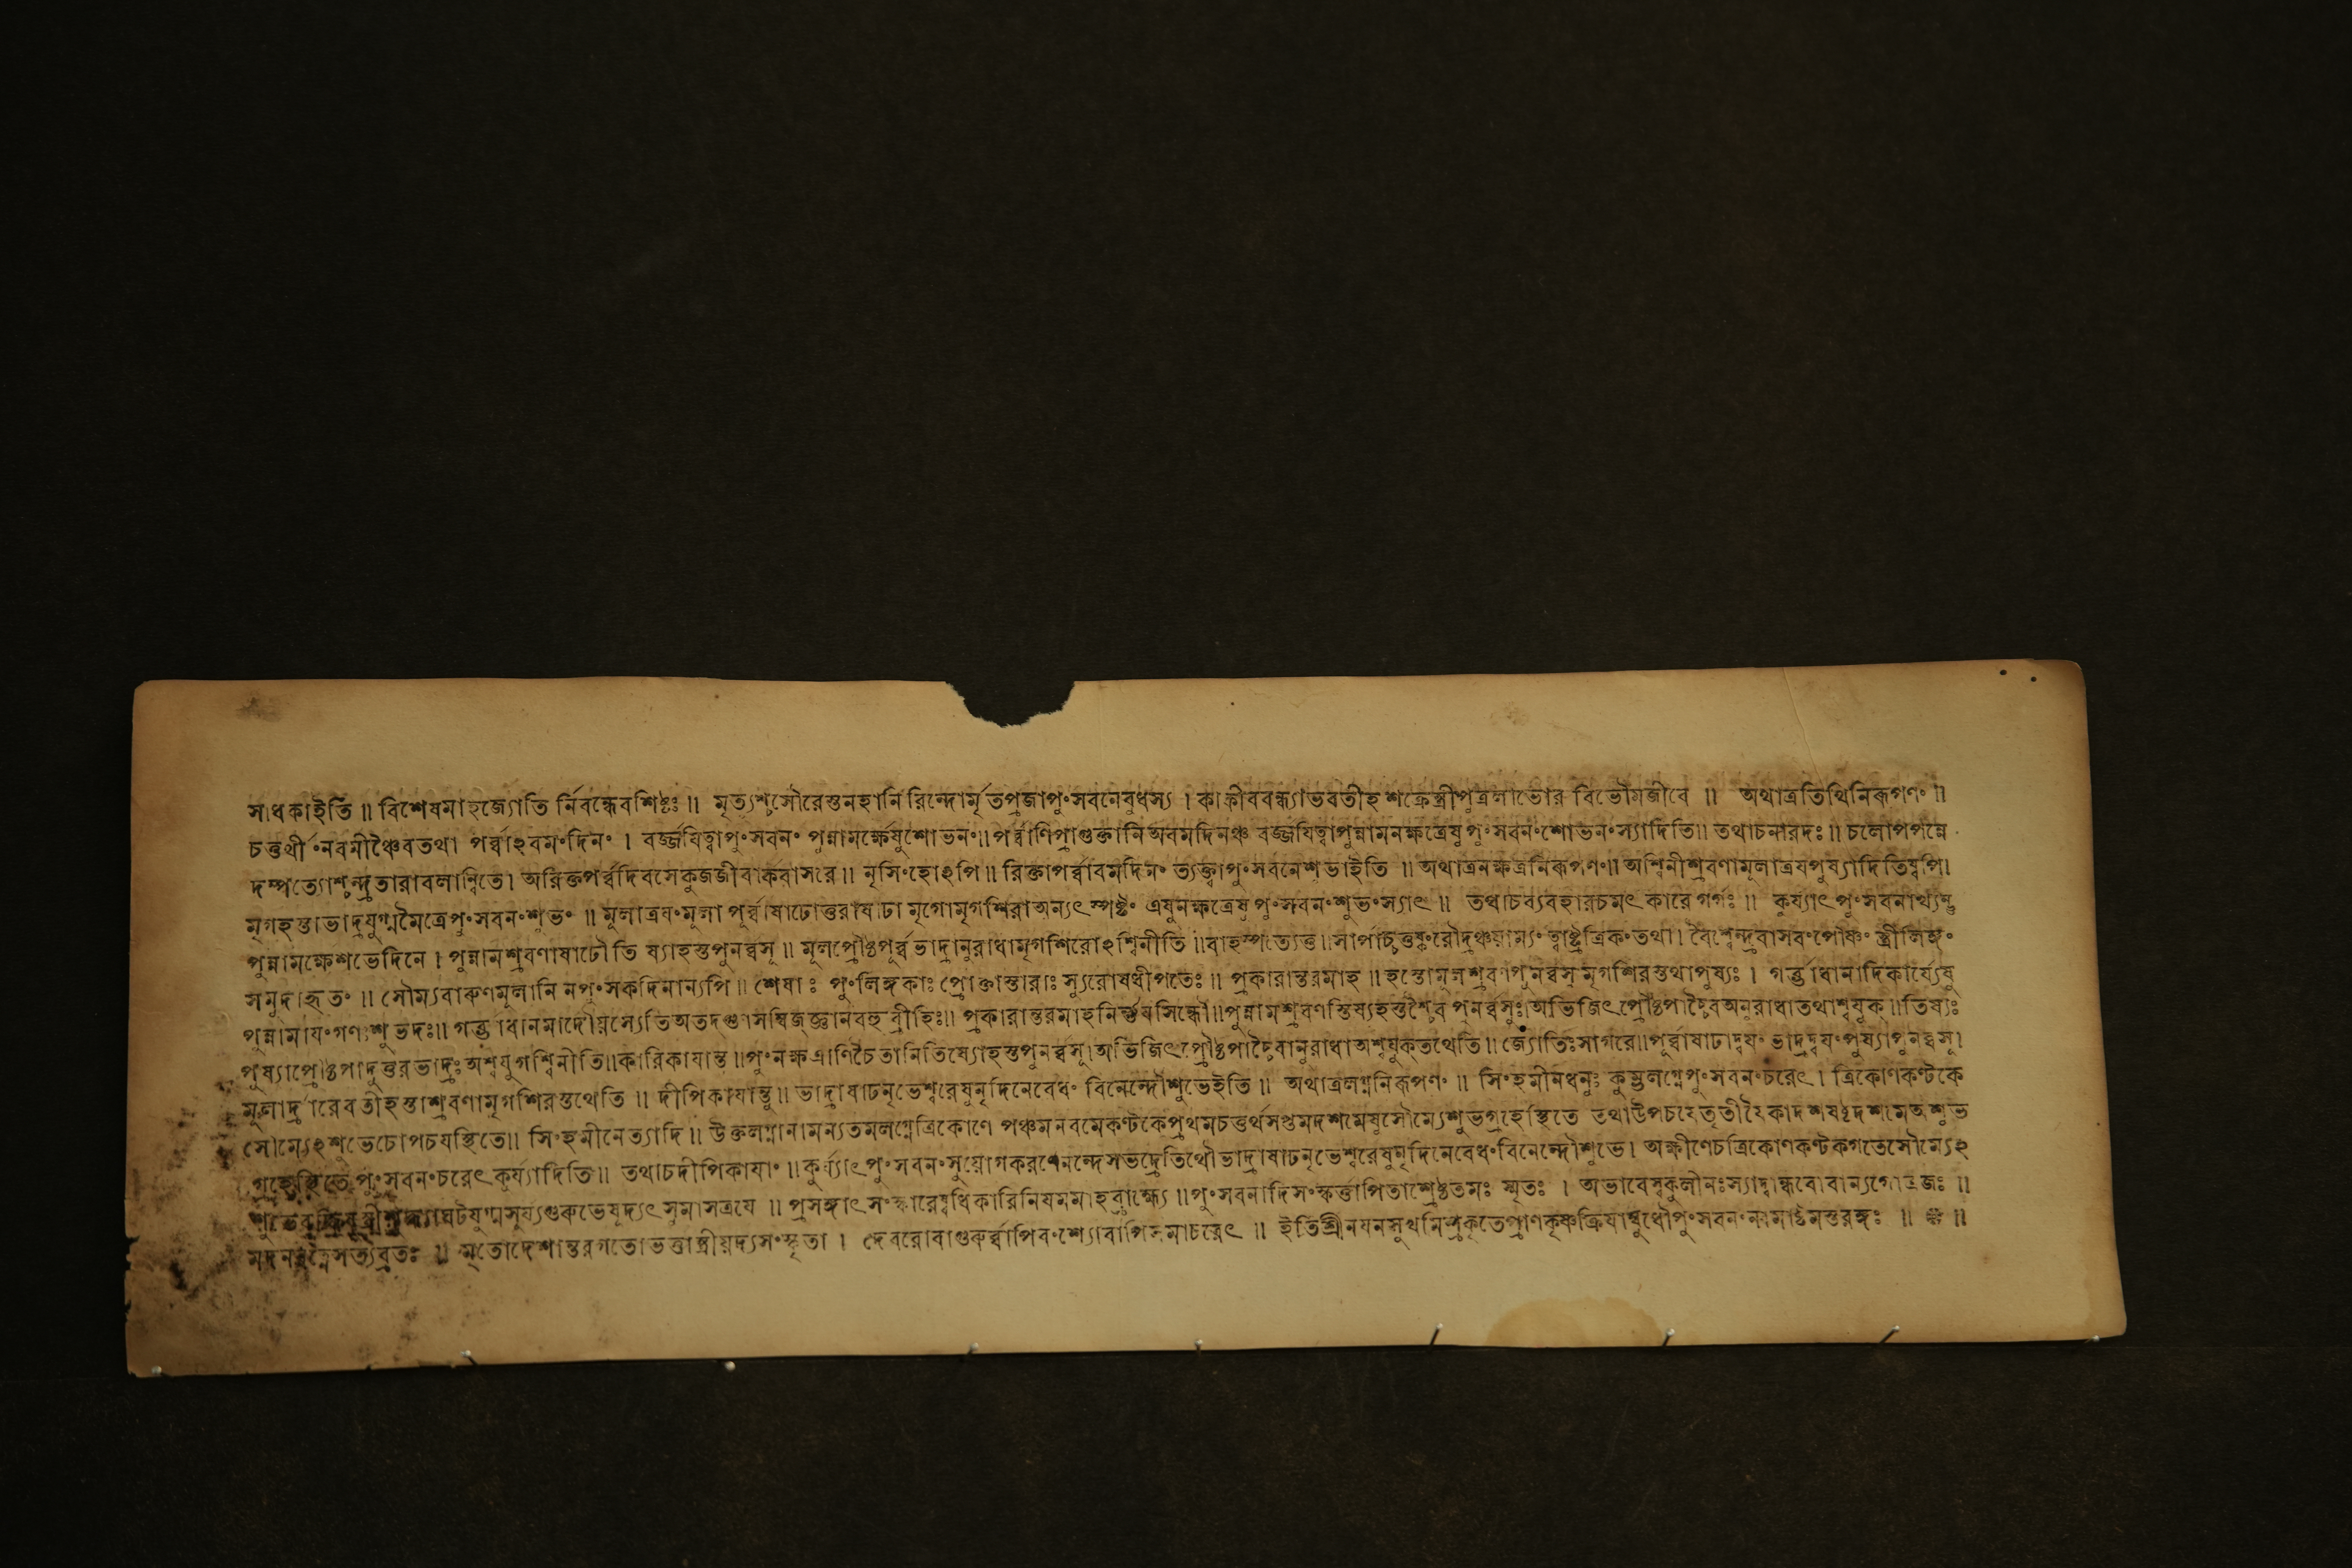 সাধকাইতি ॥ বিশেষমাহজ্যোতি র্নিবন্ধেবশিষ্টঃ ॥ মৃত্যুশ্চসৌরেস্তনহানি রিন্দোর্মৃতপ্রজাপুংসবনেবুধস্য । কাকীববন্ধ্যাভবতীহ শুক্রেস্ত্রীপুত্রলাভোর বিভৌমজীবে ॥ অথাত্রতিথিনিরূপণং ॥
চতুর্থীং নবমীঞ্চৈবতথা পর্ব্বাহবমংদিনং । বর্জ্জযিত্বাপুংসবনং পুন্নামর্ক্ষেষুশোভনং॥ পর্ব্বাণিপ্রাগুক্তানি অবমদিনঞ্চ বর্জ্জযিত্বাপুন্নামনক্ষত্রেষুপুংসবনংশোভনংস্যাদিতি॥ তথাচনারদঃ ॥ চলোপপন্নে
দম্পত্যোশ্চন্দ্রতারাবলান্বিতে। অরিক্তপর্ব্বদিবসেকুজজীবার্কবাসরে ॥ নৃসিংহোঽপি ॥ রিক্তাপর্ব্বাবমদিনং ত্যক্ত্বাপুংসবনেশুভাইতি ॥ অথাত্রনক্ষত্রনিরূপণং॥ অশ্বিনীশ্রবণামূলাত্রযপুষ্যাদিতিদ্বপি।
মৃগহস্তাভাদ্রযুগ্মমৈত্রেপুংসবনংশুভং ॥ মূলাত্রযংমূলা পূর্ব্বাষাঢোত্তরাষাঢা মৃগোমৃগশিরাঅন্যৎস্পষ্টং এষুনক্ষত্রেষু পুংসবনংশুভংস্যাৎ ॥ তথাচব্যবহারচমৎকারে গর্গঃ ॥ কুর্য্যাৎ পুংসবনার্থ্যন্তু
পুন্নামর্ক্ষেশুভেদিনে । পুন্নামশ্রবণাষাঢৌতি ষ্যাহস্তপুনর্ব্বসূ ॥ মূলপ্রৌষ্ঠপূর্ব্বভাদ্রানুরাধামৃগশিরোঽশ্বিনীতি ॥বার্হস্পত্যেতু॥সার্পাচ্চতুষ্কংরৌদ্রঞ্চয়াম্যং ত্বাষ্ট্রত্রিকংতথা। বৈশ্বেন্দ্রবাসবংপৌষ্ণং স্ত্রীলিঙ্গং
সমুদাহৃতং ॥ সৌম্যবারুণমূলানি নপুংসকদিনান্যপি ॥ শেষাঃ পুংলিঙ্গকাঃ প্রোক্তাস্তারাঃ স্যুরোষধীপতেঃ ॥ প্রকারান্তরমাহ ॥ হস্তোমূলশ্রবণাপুনর্ব্বসুমৃগশিরস্তথাপুষ্যঃ । গর্ভ্ভাধানাদিকার্য্যেষু
পুন্নামাযংগণঃশুভদঃ॥ গর্ভ্ভাধানমাদৌয়স্যেতিঅতদগুণসম্বিজ্ঞানবহুব্রীহিঃ॥ প্রকারান্তরমাহনির্ণ্ণযসিন্ধৌ॥পুন্নামশ্রবণস্তিষ্যহস্তশ্চৈব পুনর্ব্বসুঃ।অভিজিৎপ্রৌষ্ঠপাচ্চৈবঅনুরাধাতথাশ্বযুক্॥তিষ্যঃ
পুষ্যাপ্রৌষ্ঠপাদুত্তরভাদ্রঃঅশ্বযুগশ্বিনীতি॥কারিকাযান্তু ॥পুংনক্ষত্রাণিচৈতানিতিষ্যোহস্তপুনর্ব্বসূ।অভিজিৎপ্রৌষ্ঠপাচ্চৈবানুরাধাঅশ্বযুক্তথেতি॥ জ্যোতিঃসাগরে॥পূর্ব্বাষাঢাদ্বযং ভাদ্রদ্বযংপুষ্যাপুনর্ব্বসূ।
মূলার্দ্রারেবতীহস্তাশ্রবণামৃগশিরস্তথেতি ॥ দীপিকাযান্তু॥ ভাদ্রাষাঢনৃভেশ্বরেষুনৃদিনেবেধং বিনেন্দৌশুভেইতি ॥ অথাত্রলগ্ননিরূপণং ॥ সিংহমীনধনুঃ কুম্ভলগ্নেপুংসবনংচরেৎ। ত্রিকোণকণ্টকে
সৌম্যেঽশুভেচোপচযস্থিতে॥ সিংহমীনেত্যাদি॥ উক্তলগ্নানামন্যতমলগ্নেত্রিকোণে পঞ্চমনবমেকণ্টকেপ্রথমচতুর্থসপ্তমদশমেষুসৌম্যেশুভগ্রহেস্থিতে তথাউপচযেতৃতীযৈকাদশষষ্ঠদশমেঅশুভ
গ্রহেস্থিতে পুংসবনংচরেৎকুর্য্যাদিতি॥ তথাচদীপিকাযাং ॥ কুর্য্যাৎপুংসবনংসুয়োগকরণেনন্দেসভদ্রেতিথৌভাদ্রাষাঢনৃভেশ্বরেষুনৃদিনেবেধংবিনেন্দৌশুভে। অক্ষীণেচত্রিকোণকণ্টকগতেসৌম্যেঽ
ঘটযুগ্মসূর্য্যগুরুভেষূদ্যৎসুমাসত্রযে ॥ প্রসঙ্গাৎ সংস্কারেষ্বধিকারিনিযমমাহব্রাহ্ম্যে ॥পুংসবনাদিসংস্কর্ত্তাপিতাশ্রেষ্ঠতমঃ স্মৃতঃ । অভাবেস্বকুলীনঃস্যাদ্বান্ধবোবান্যগোত্রজঃ ॥
মদনরত্নেসত্যব্রতঃ ॥ মৃতোদেশান্তরগতোভর্ত্তাস্ত্রীয়দ্যসংস্কৃতা । দেবরোবাগুরুর্ব্বাপিবংশ্যোবাপিসমাচরেৎ ॥ ইতিশ্রীনযনসুখমিশ্রকৃতেপ্রাণকৃষ্ণক্রিযাম্বুধৌপুংসবনংনামাষ্টমস্তরঙ্গঃ ॥ ❋ ॥